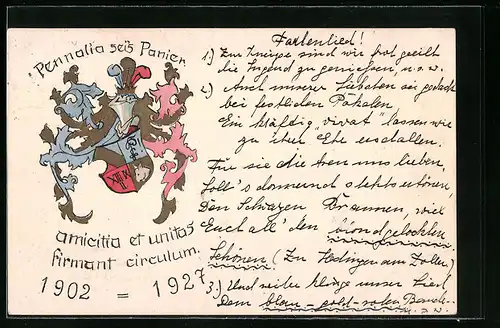 "Pennalia sei's Panier.
amicitia et unitas
firmant circulum.
1902 = 1927
Farbenlied!
1.) Zur Kneipe sind wir froh geeilt
die Jugend zu geniessen, u.s.w.
2.) Auch unserer Liebsten sei gedacht
bei festlichen Pokalen
Ein kräftig "vivat" lassen wir
zu ihrer Ehre erschallen.
Für sie die Aren uns lieben,
soll's donnernd stets ertönen,
Den Schwarzen Braunen, wie
Euch all' den blondgelockten
Schönen (Zu Hedingen am Zoller)
3.) Und weiter klinge unser Lied
Dem blau-gold-roten Bande.
u.s.w.